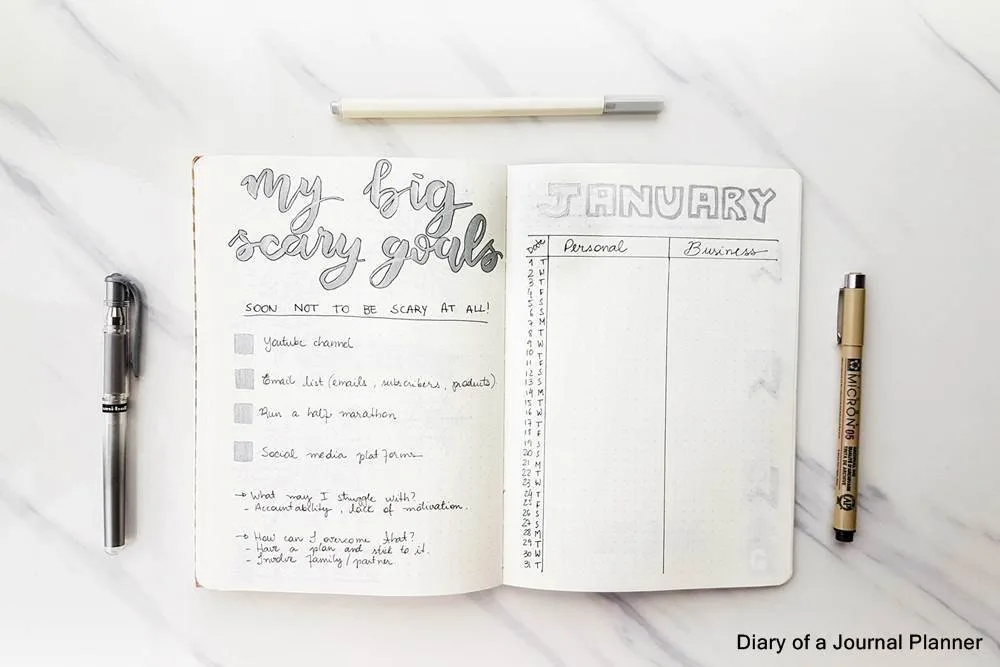 my big
scary goals
SOON NOT TO BE SCARY AT ALL!
Youtube channel
Email list (emails, subscribers, products)
Run a half marathon
Social media platforms
→ What may I struggle with?
- Accountability, lack of motivation.
→ How can I overcome that?
- Have a plan and stick to it.
- Involve family/partner.
JANUARY
Date Personal Business
1 T
2 W
3 T
4 F
5 S
6 S
7 M
8 T
9 W
10 T
11 F
12 S
13 S
14 M
15 T
16 W
17 T
18 F
19 S
20 S
21 M
22 T
23 W
24 T
25 F
26 S
27 S
28 M
29 T
30 W
31 T
MICRON 05
Diary of a Journal Planner